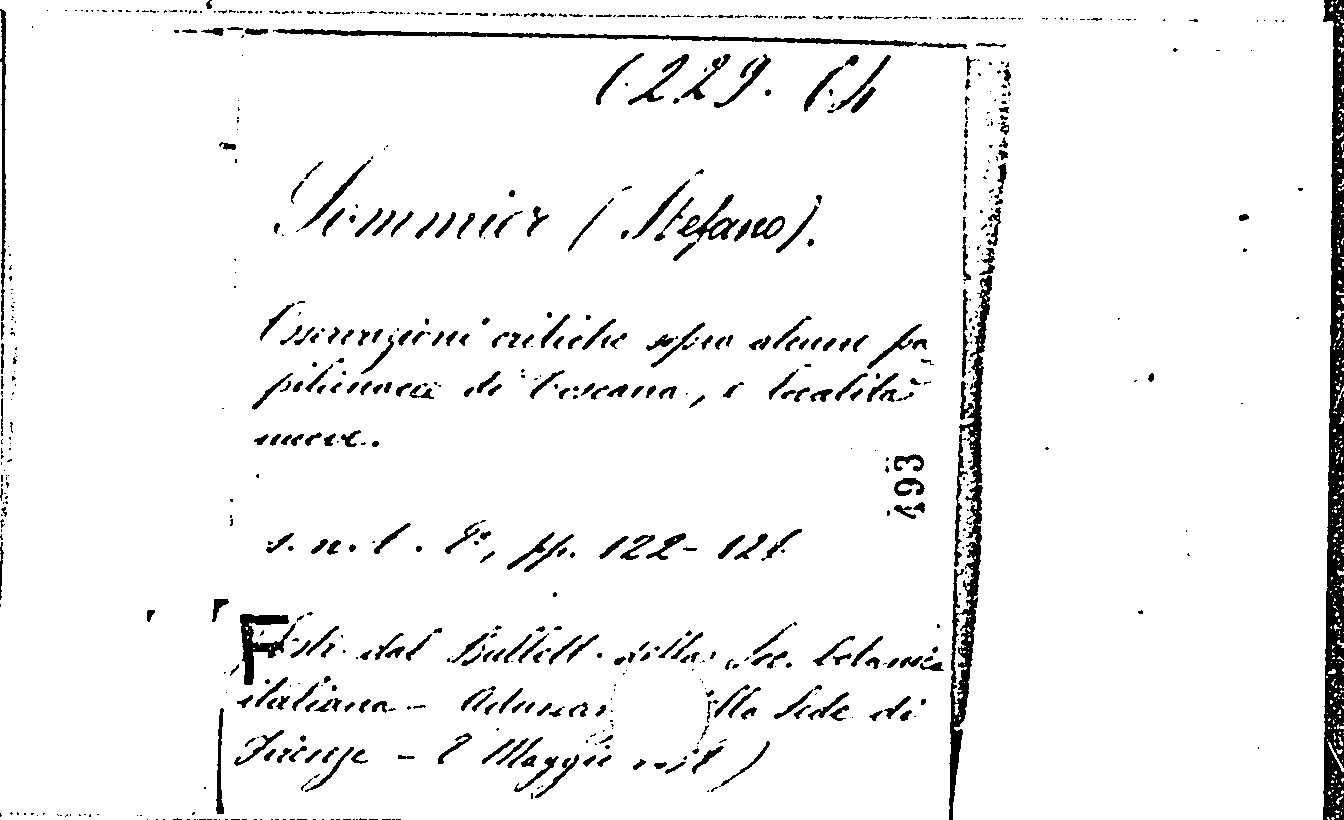 Sommier (Stefano).
Osservazioni critiche sopra alcune pa
pilionacee di Toscana, e località
nuove.
493
s. n. t. 8°, pp. 122-128
Estr. dal Bullett. della Soc. botanica
italiana - Adunan ella Sede di
Firenze - 8 Maggio